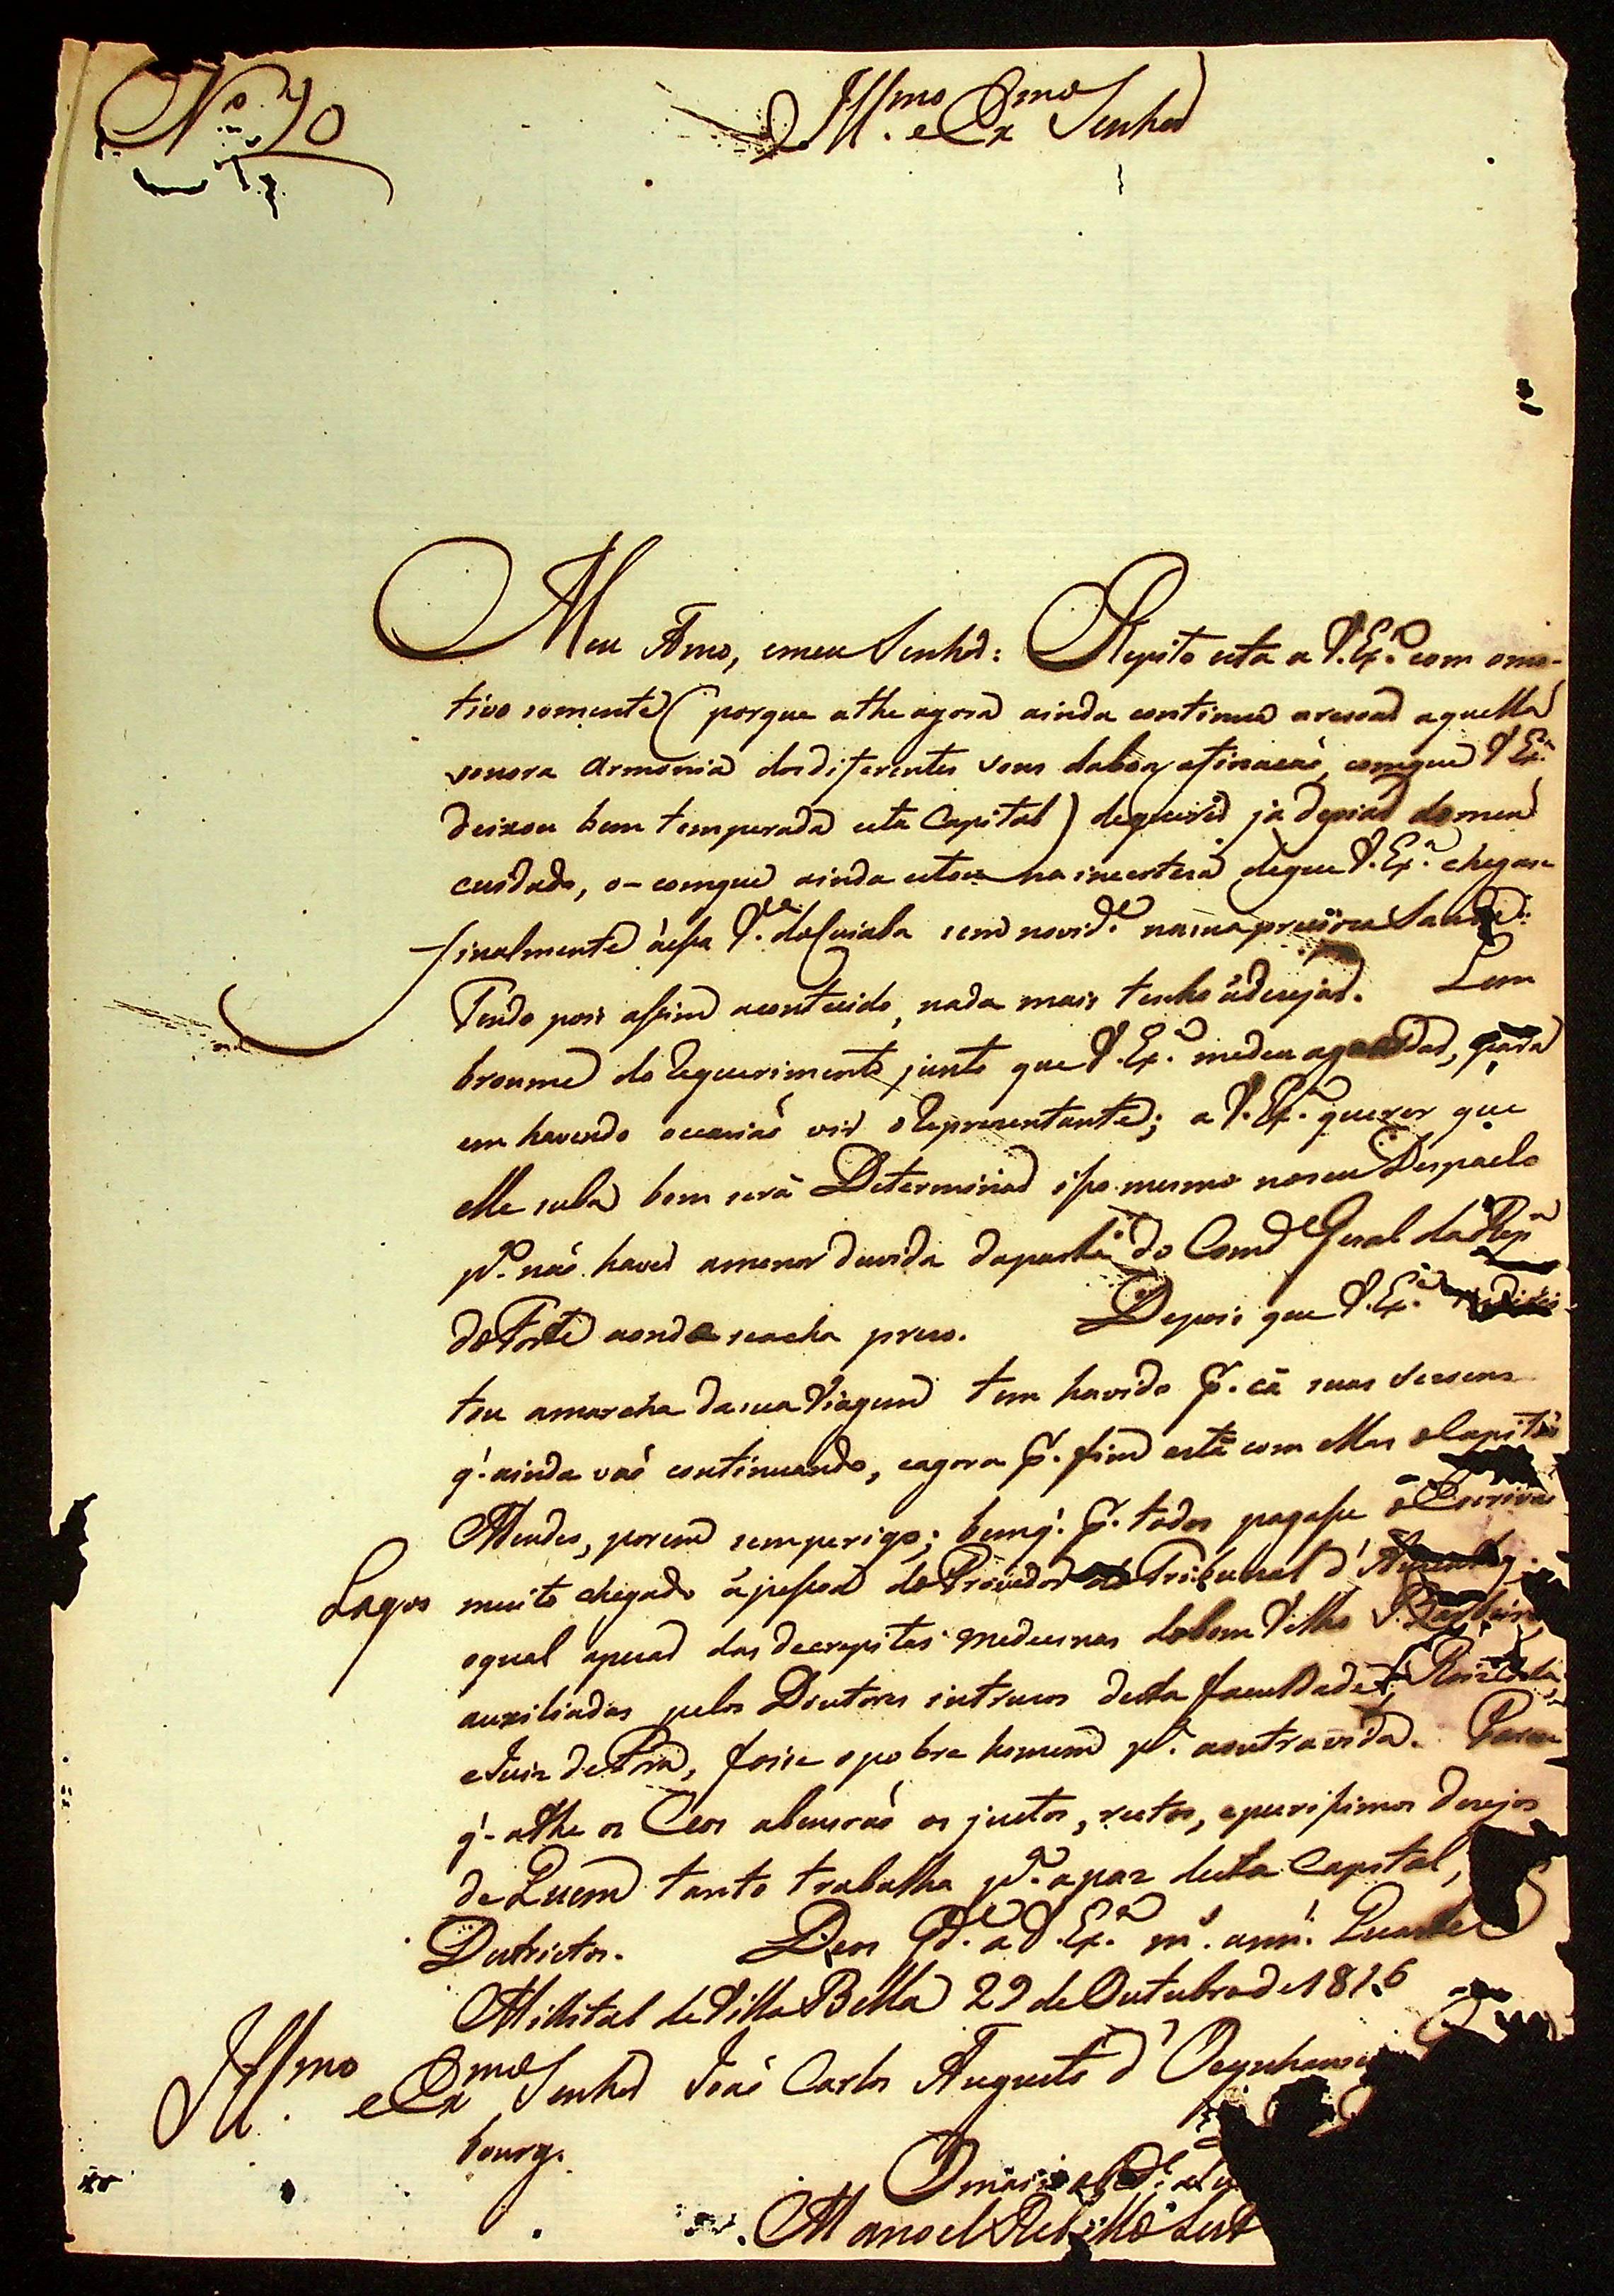 Nº 70
Illmo. e Exmo Senhor
Meu Amo, emeu Senhor: Repito esta a V. Exª com omo-
tivo somente (porque athe agora ainda continua aressoar aquella
sonora armonia dosdiferentes sons daboa afinacaõ, comque V Exª
deixou bem temperada esta Capital) dequerer ja depiar do meu
cuidado, o-comque ainda estou na incerteza deque V. Exª. chegase
finalmente áessa Vª. doCuiaba sem novide. nasua preciosa Saude:
Tendo pois assim acontecido, nada mais tenho ádezejar. Lem
broume do Requerimento junto que V. Exª. medeu aguardar, para
em havendo occasiaõ vir oRepresentante; a V. Exª. querer que
elle suba bom será Determinar isso mesmo noseu Despacho
pª. naõ haver amenor duvida daparte do Comde Geral da Repª
doForte aonde seacha prezo. Depois que V. Exª.
tou amarcha dasua Viagem tem havido pr. cá suas Sezoens
q. ainda vaõ continuando, eagora pr. fim está com ellas oCapitaõ
Mendes, porem semperigo; bemq. pr. todos pagasse o Escrivaõ
Lagos muito chegado ápessoa doProvedor do Tribunal d'
oqual apezar das decrepitas medecinas dobom Velho S.
auxiliadas pelos Doutores intrusos desta faculdade
eJuiz deFóra, foise opobre homem pª. aoutravida. Parece
q. athe os Ceos abensoaõ os justos, rectos, epurissimos dezejos
de Quem tanto trabalha pª. apaz desta Capital,
Destrictos. Deos Gde. a V. Exª. ms. anns. Quartel
Millitar de Villa Bella 29 de Outubro de 1816
Illmo. e Exmo Senhor Joaõ Carlos Augusto d'Oeynhausen
bourg.
Omais
Manoel Rebello Leite